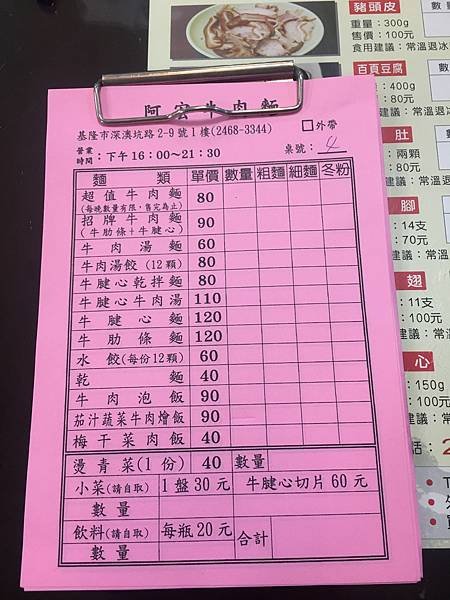 阿宏牛肉麵
基隆市深澳坑路2-9號1樓(2468-3344) □外帶
營業時間：下午16：00～21：30 桌號：4
麵類 單價 數量 粗麵 細麵 冬粉
超值牛肉麵 80
(每晚數量有限，售完為止)
招牌牛肉麵 90
(牛肋條+牛腱心)
牛肉湯麵 60
牛肉湯餃(12顆) 80
牛腱心乾拌麵 80
牛腱心牛肉湯 110
牛腱心麵 120
牛肋條麵 120
水餃(每份12顆) 60
乾麵 40
牛肉泡飯 90
茄汁蔬菜牛肉燴飯 90
梅干菜肉飯 40
燙青菜(1份) 40 數量
小菜(請自取) 1盤30元 牛腱心切片60元
數量
飲料(請自取) 每瓶20元 合計
數量
豬頭皮
重量：300g
售價：100元
食用建議：常溫退冰
百頁豆腐 數
：400g
：80元
建議：常溫
肚
：兩顆
：80元
建議：常
腳
：14支
：70元
建議：常
翅
：11支
：100元
建議：常溫
心
：150g
：100元
建議：常溫
話：2